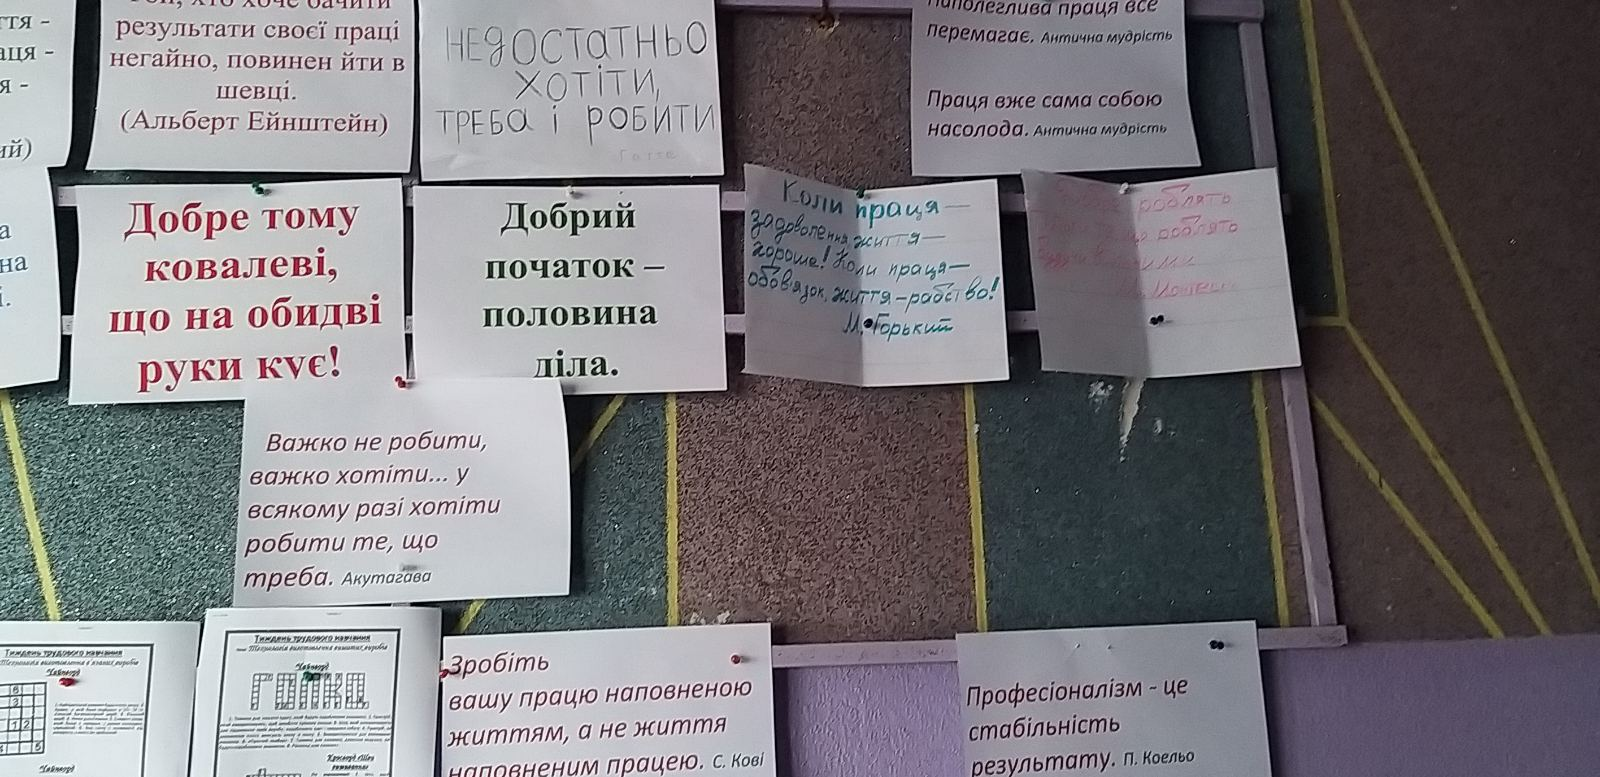 ття -
аця -
я -
ий)
а
на
і.
хто хоче бачити
результати своєї праці
негайно, повинен йти в
шевці.
(Альберт Ейнштейн)
НЕДОСТАТНЬО
ХОТІТИ,
ТРЕБА І РОБИТИ
Готте
Наполеглива праця все
перемагає. Антична мудрість
Праця вже сама собою
насолода. Антична мудрість
Добре тому
ковалеві,
що на обидві
руки кує!
Добрий
початок –
половина
діла.
Коли праця —
задоволення, життя —
хороше! Коли праця —
обов'язок, життя – рабство!
М. Горький
роблять
роблять
Важко не робити,
важко хотіти... у
всякому разі хотіти
робити те, що
треба. Акутагава
Тиждень трудового навчання
Технологія виготовлення в'язаних виробів
Чайнворд
6
3
1 2
5
Чайнворд
Тиждень трудового навчання
Технологія виготовлення вишитих виробів
Чайнворд
Зробіть
вашу працю наповненою
життям, а не життя
наповненим працею. С. Кові
Професіоналізм - це
стабільність
результату. П. Коельо